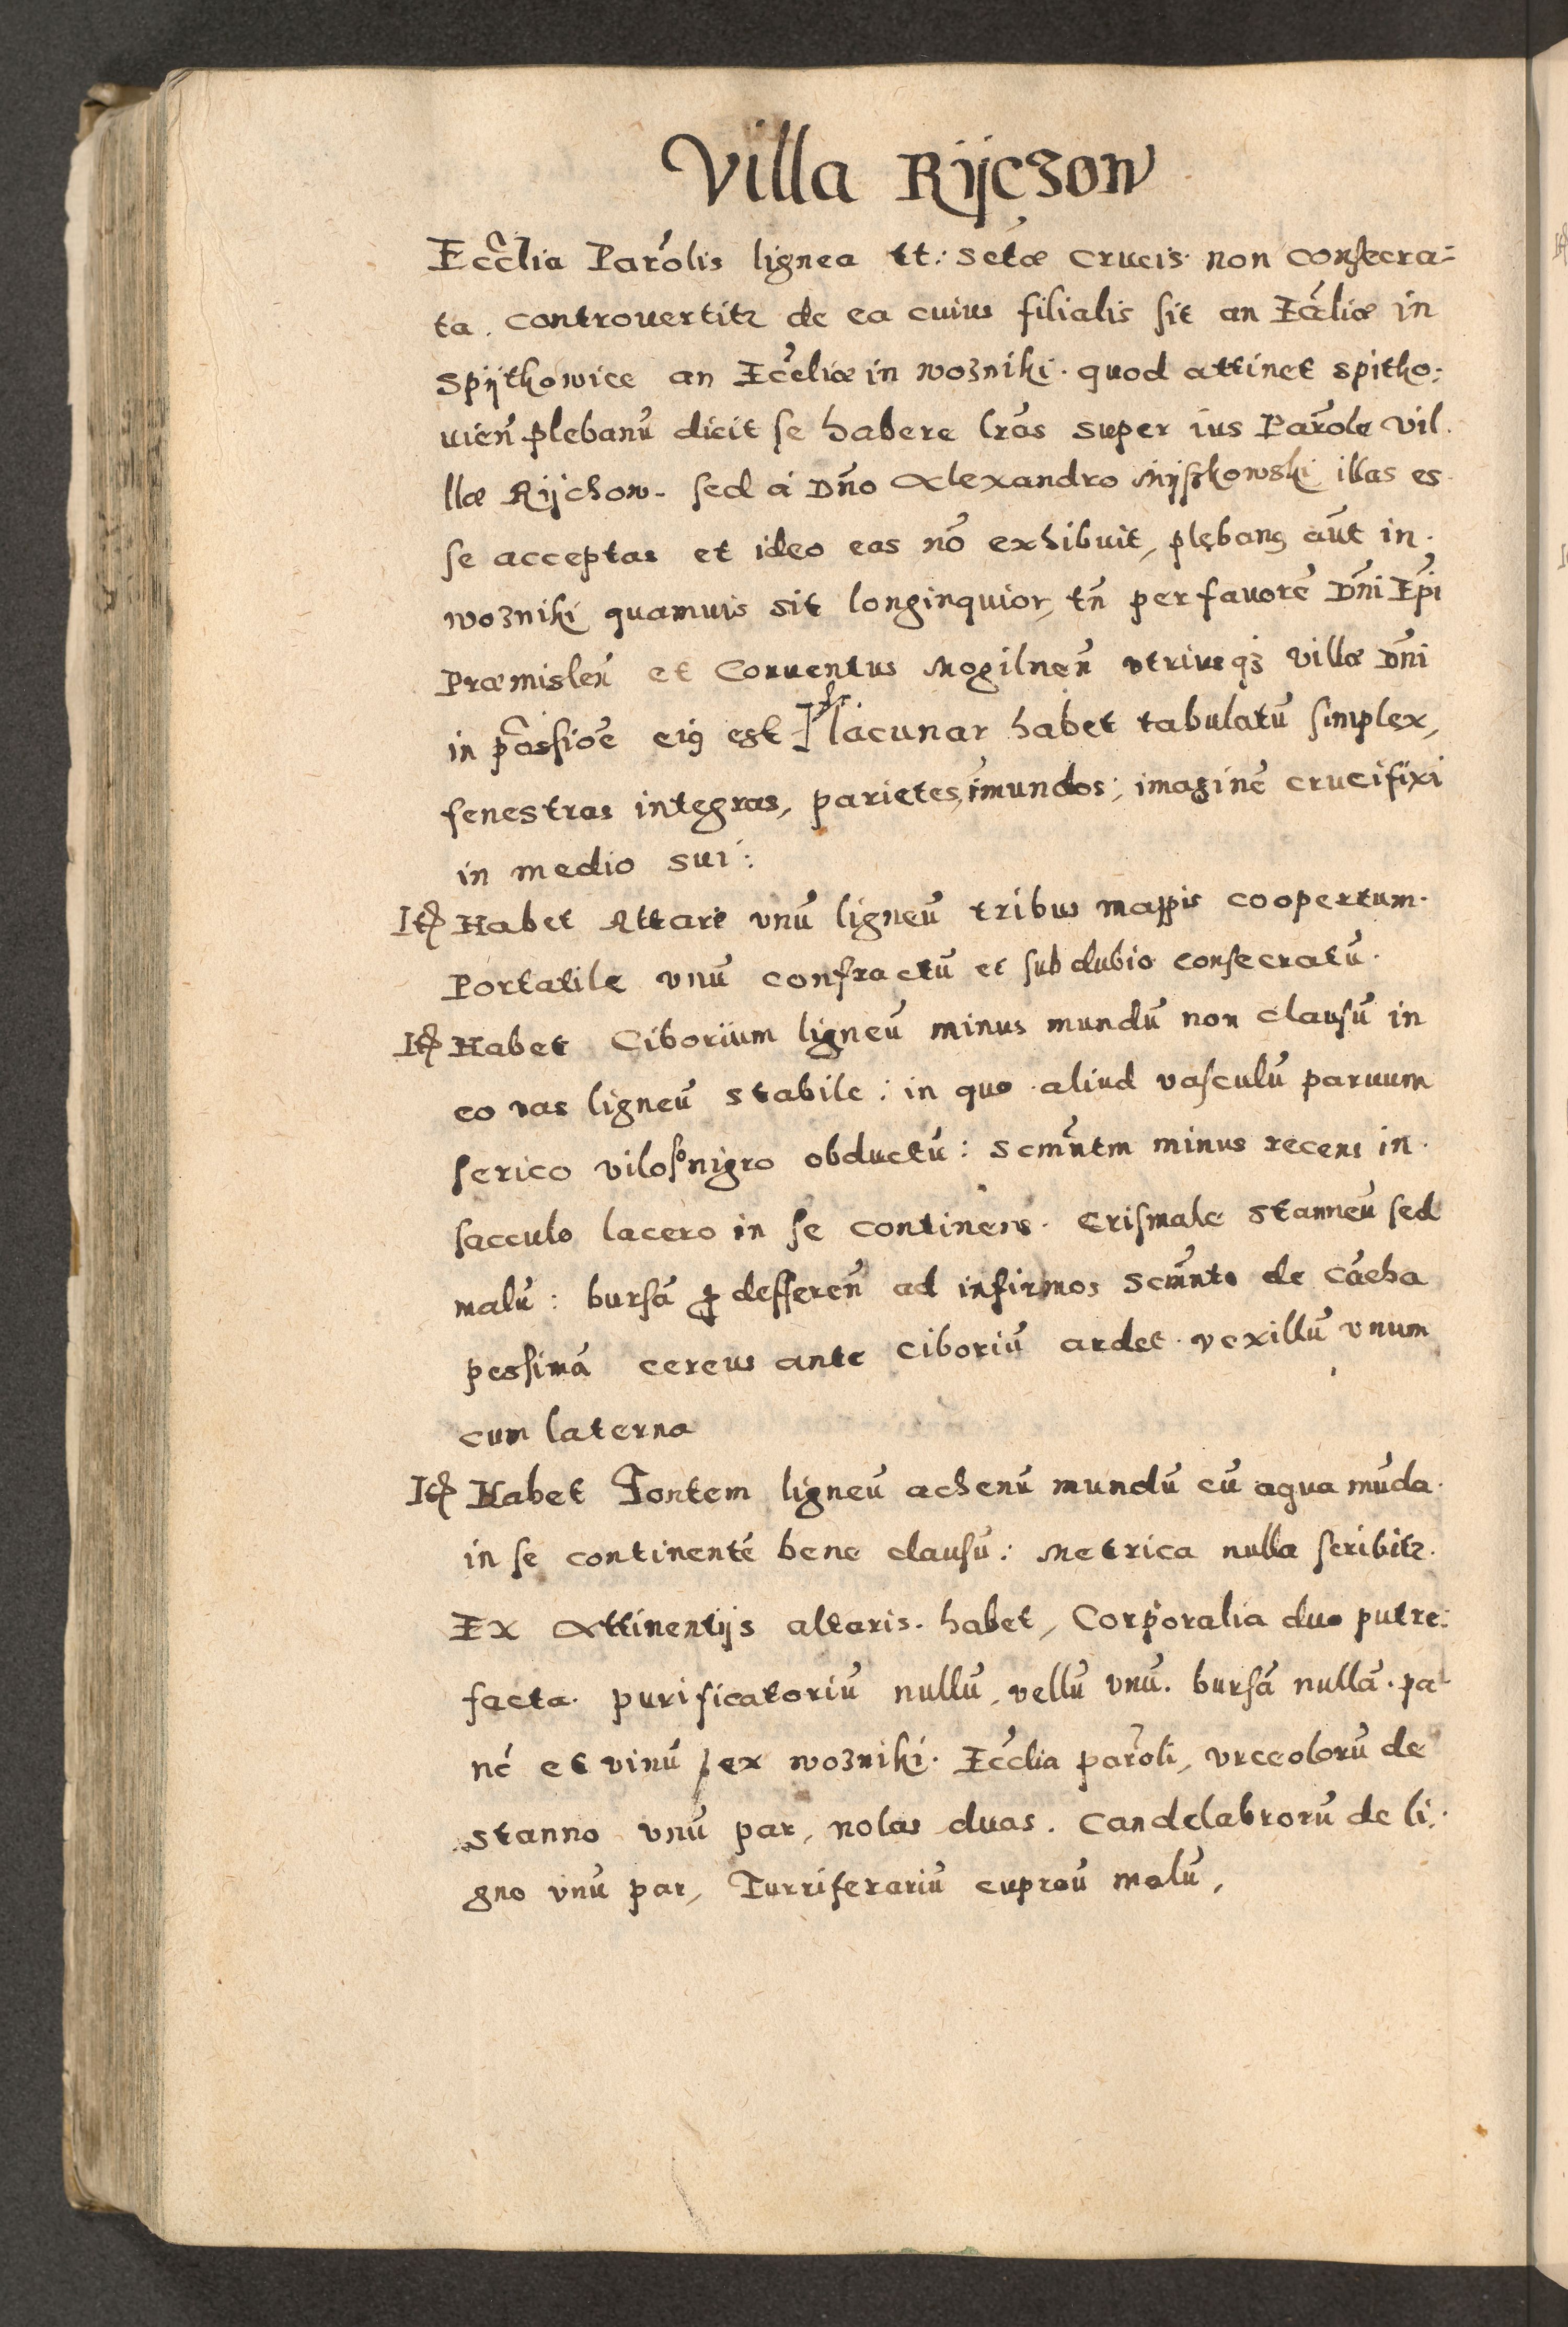 Villa Rijczow
Eccĺia Parôlis lignea tt: Sctæ Crucis non consecra=
ta. controuertitr de ea cuius filialis sit an Eccĺiæ in
Spijtkowice an Eccĺiæ in wozniki. quod attinet spitko=
uien̄ plebanū dicit se habere lr̄as super ius Parōle vil.
llæ Rijchow. sed à Dn̄o Alexandro Mijszkowski illas es
se acceptas et ideo eas nō exhibuit, plebang aūt in.
wozniki quamuis sit longinquior, tn̄ per fauorē Dn̄i Ep̄i
Præmislen̄ et Conuentus Mogilnen̄ vtriusqз villæ Dn̄i
in p̄assiōe eig est lacunar habet tabulatū simplex,
fenestras integras, parietes īmundos; imaginē crucifixi
in medio sui:
Itē Habet Altare vnū ligneū tribus mappis coopertum.
Portatile vnū confractū et sub dubio consecratū.
Itē Habet Ciborium ligneū minus mundū non clausū in
eo vas ligneū stabile: in quo aliud vasculū paruum
serico viloso nigro obductū: Scm̄ntm minus recens in.
sacculo lacero in se continens. Crismale stanneū sed
malū: bursā ꝓ defferen̄ ad infirmos Scm̄nto de cāeha
pessimā cereus ante ciboriū ardet. vexillū vnum
cum laterna
Itē Habet Fontem ligneū achenū mundū cū aqua mūda.
in se continentē bene clausū: Metrica nulla scribitr.
Ex Attinentijs altaris. habet, Corporalia duo putre=
facta. purificatoriū nullū, vellū vnū. bursā nullā. pa
nē et vinū ex wozniki. Eccĺia parōli, vrceolorū de
stanno vnū par, nolas duas. Candelabrorū de li.
gno vnū par, Turriferariū cupreū malū,